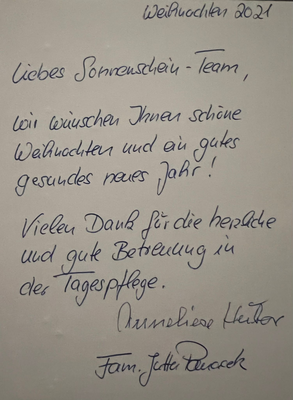 Weihnachten 2021
Liebes Sonnenschein-Team,
wir wünschen Ihnen schöne
Weihnachten und ein gutes
gesundes neues Jahr!
Vielen Dank für die herzliche
und gute Betreuung in
der Tagespflege.
Anneliese
Fam. Jutta